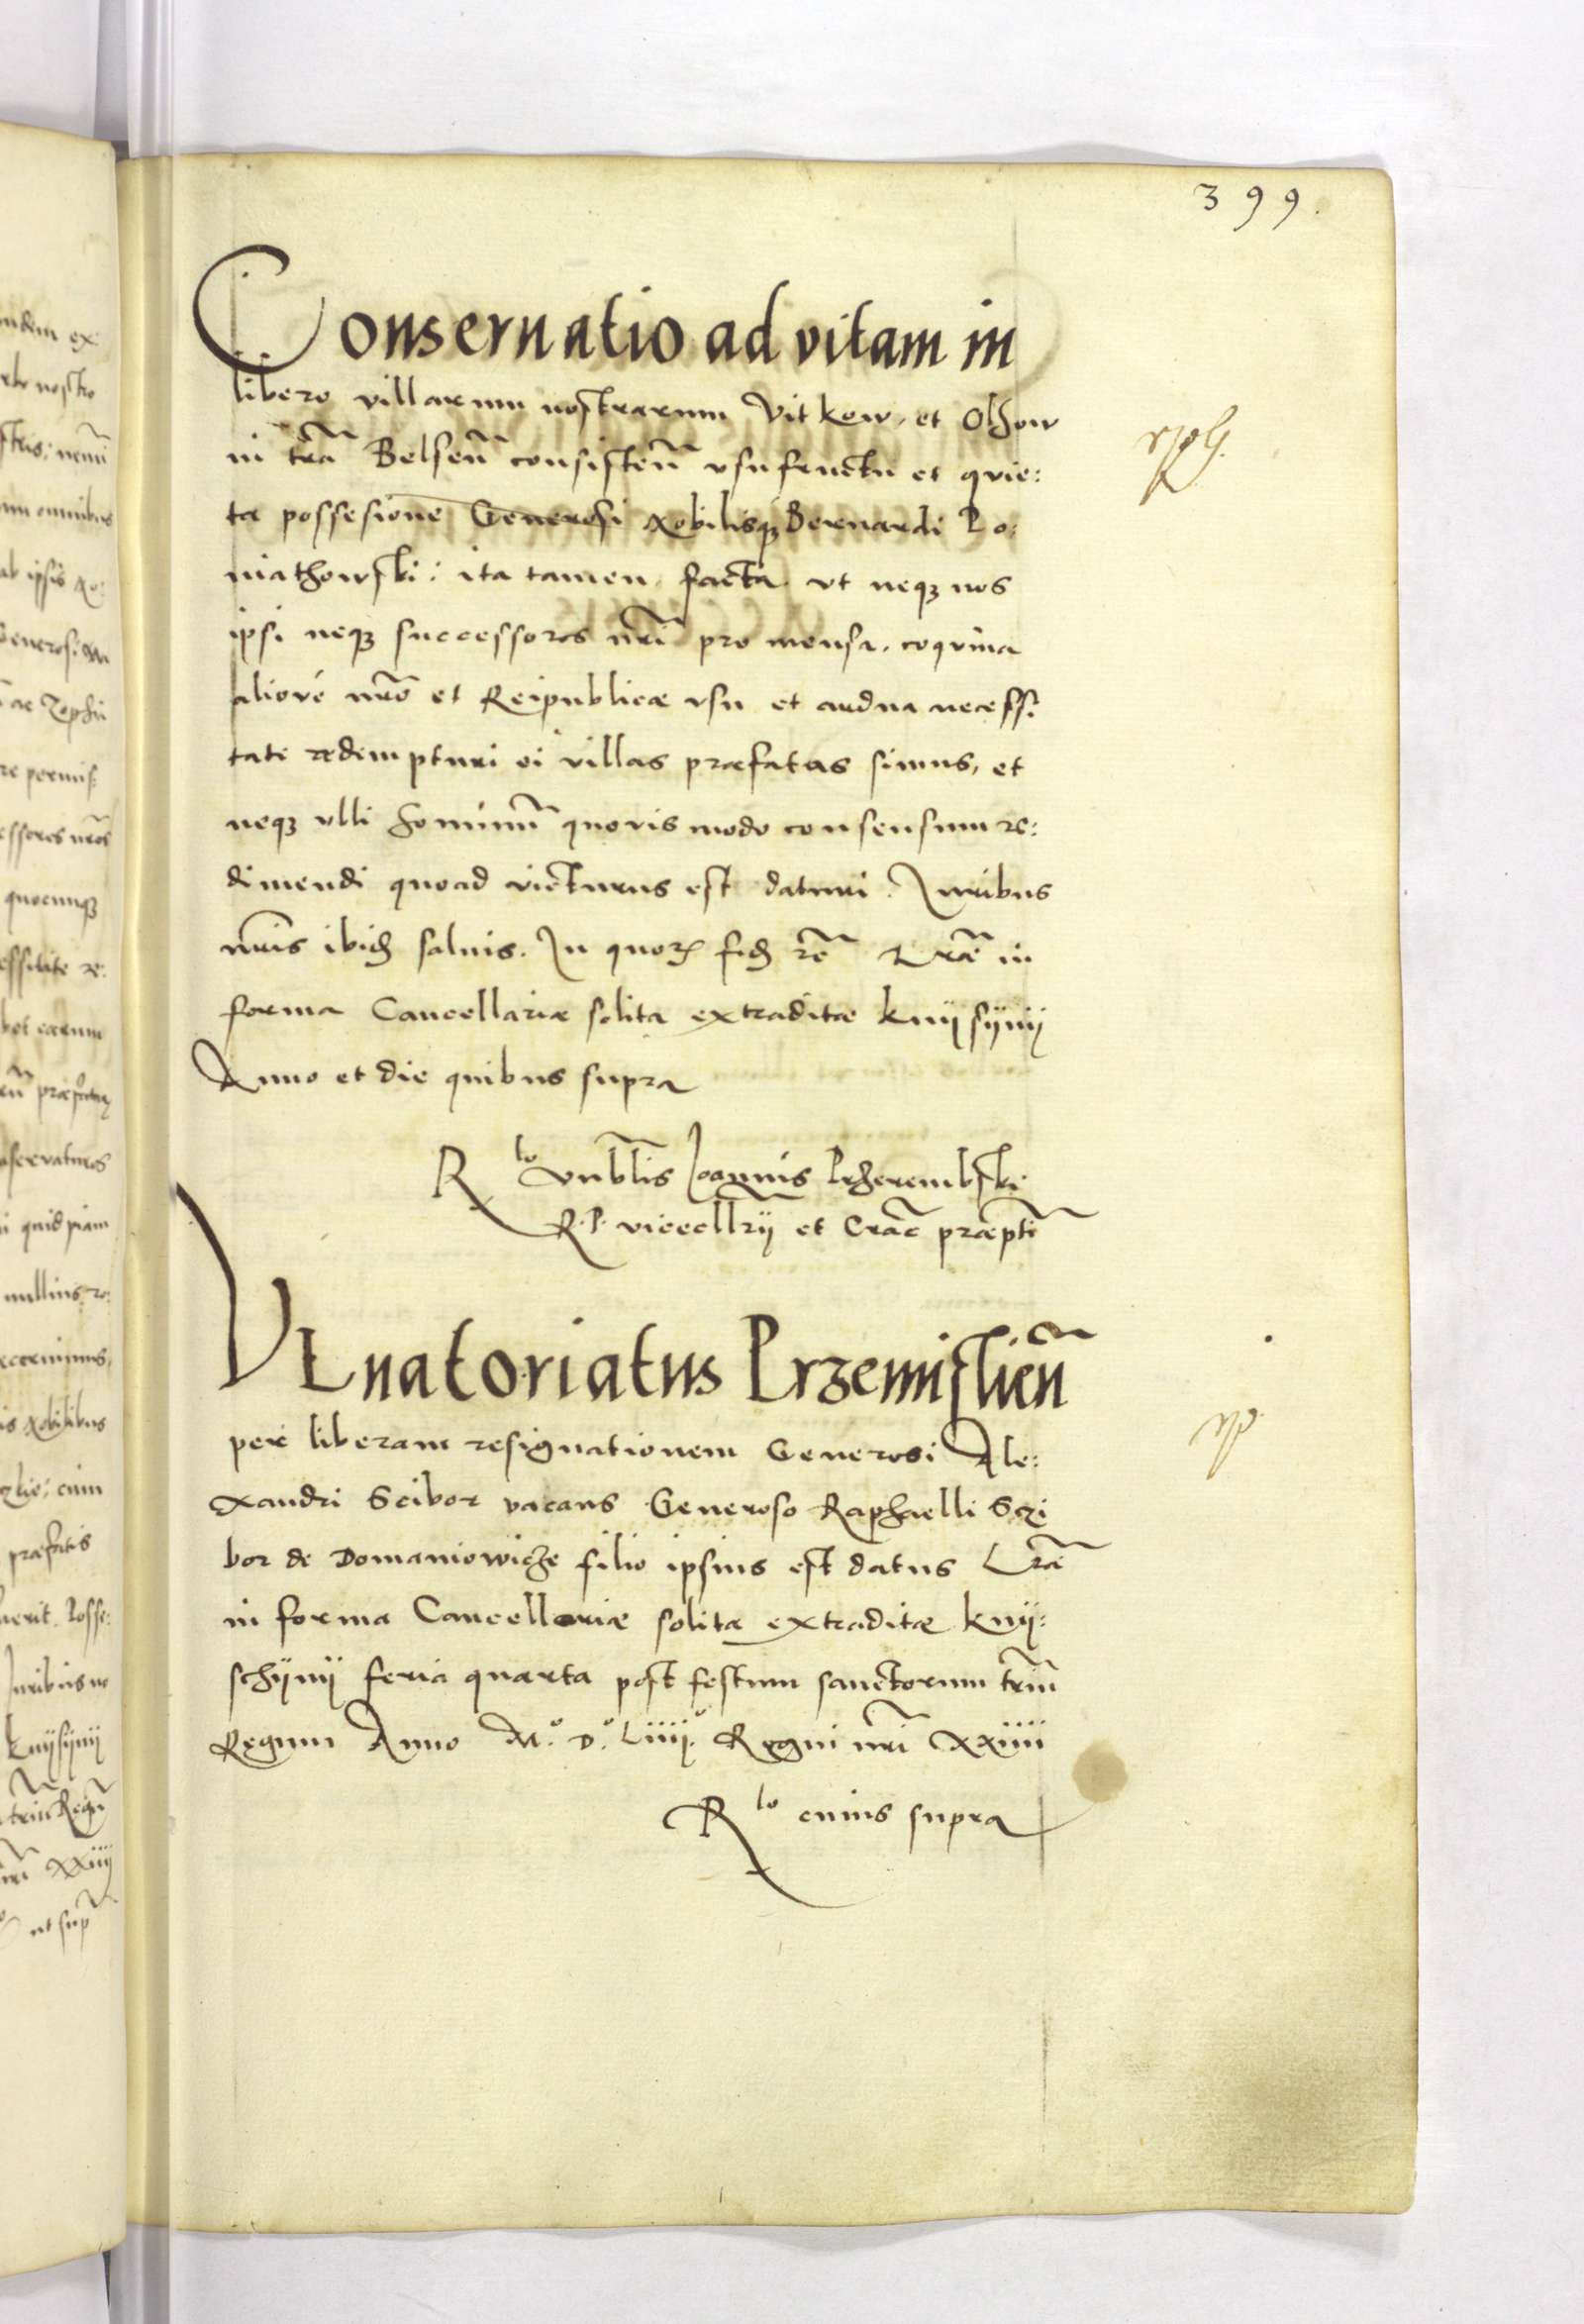 399.
Conseruatio ad vitam in
libero villarum nostrarum Vitkow, et Olhow
in tr̃a Belseñ consisteñ vsufructu et quie:
ta possesione Generosi Nobilisqꝫ Bernardi Po:
niathowski: ita tamen facta vt neqꝫ nos
ipsi neqꝫ successores nr̃i pro mensa, coquina
alioué nr̃o et Reipublicæ vsu et ardua necessi
tate redempturi ei villas præfatas simus, et
neqꝫ vlli hominum̃ quouis modo consensum re:
dimendi quoad victurus est daturi. Iuribus
nr̃is ibidꝫ saluis. In quoꝝ fidꝫ rẽ Lr̃æ in
forma Cancellariæ solita extraditæ knÿsÿnÿ
Anno et die quibus supra
Rlo Vnblĩs Joannis Przerembski
R. P. vicecllrÿ et Crac̃ præptĩ
VEnatoriatus Przemislień̃
per liberam resignationem Generosi Ale:
xandri Scibor vacans Generoso Raphaelli Sczi
bor de Domaniowicze filio ipsius est datus Lr̃æ
in forma Cancellariæ solita extraditæ knÿ:
schÿnÿ feria quarta post festum sanctorum triũ
Regum Anno M.° D.° Liiij.° Regni nr̃i xxiiii
Rlo cuius supra